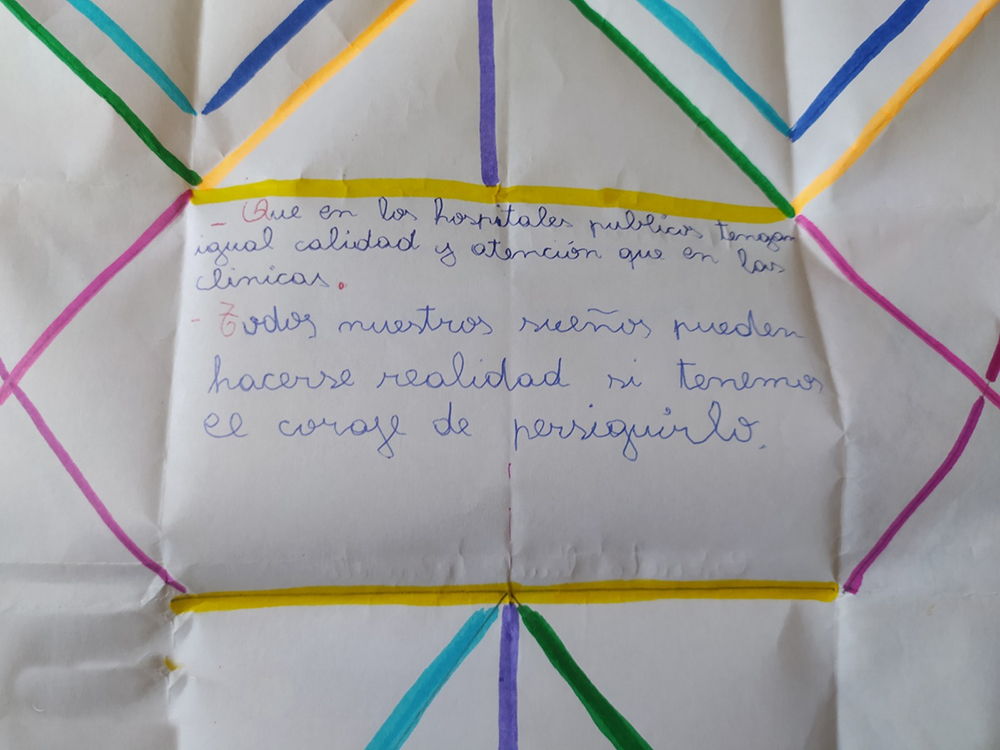 - Que en los hospitales publicos tengan
igual calidad y atención que en las
clinicas.
- Todos nuestros sueños pueden
hacerse realidad si tenemos
el coraje de perseguirlo.